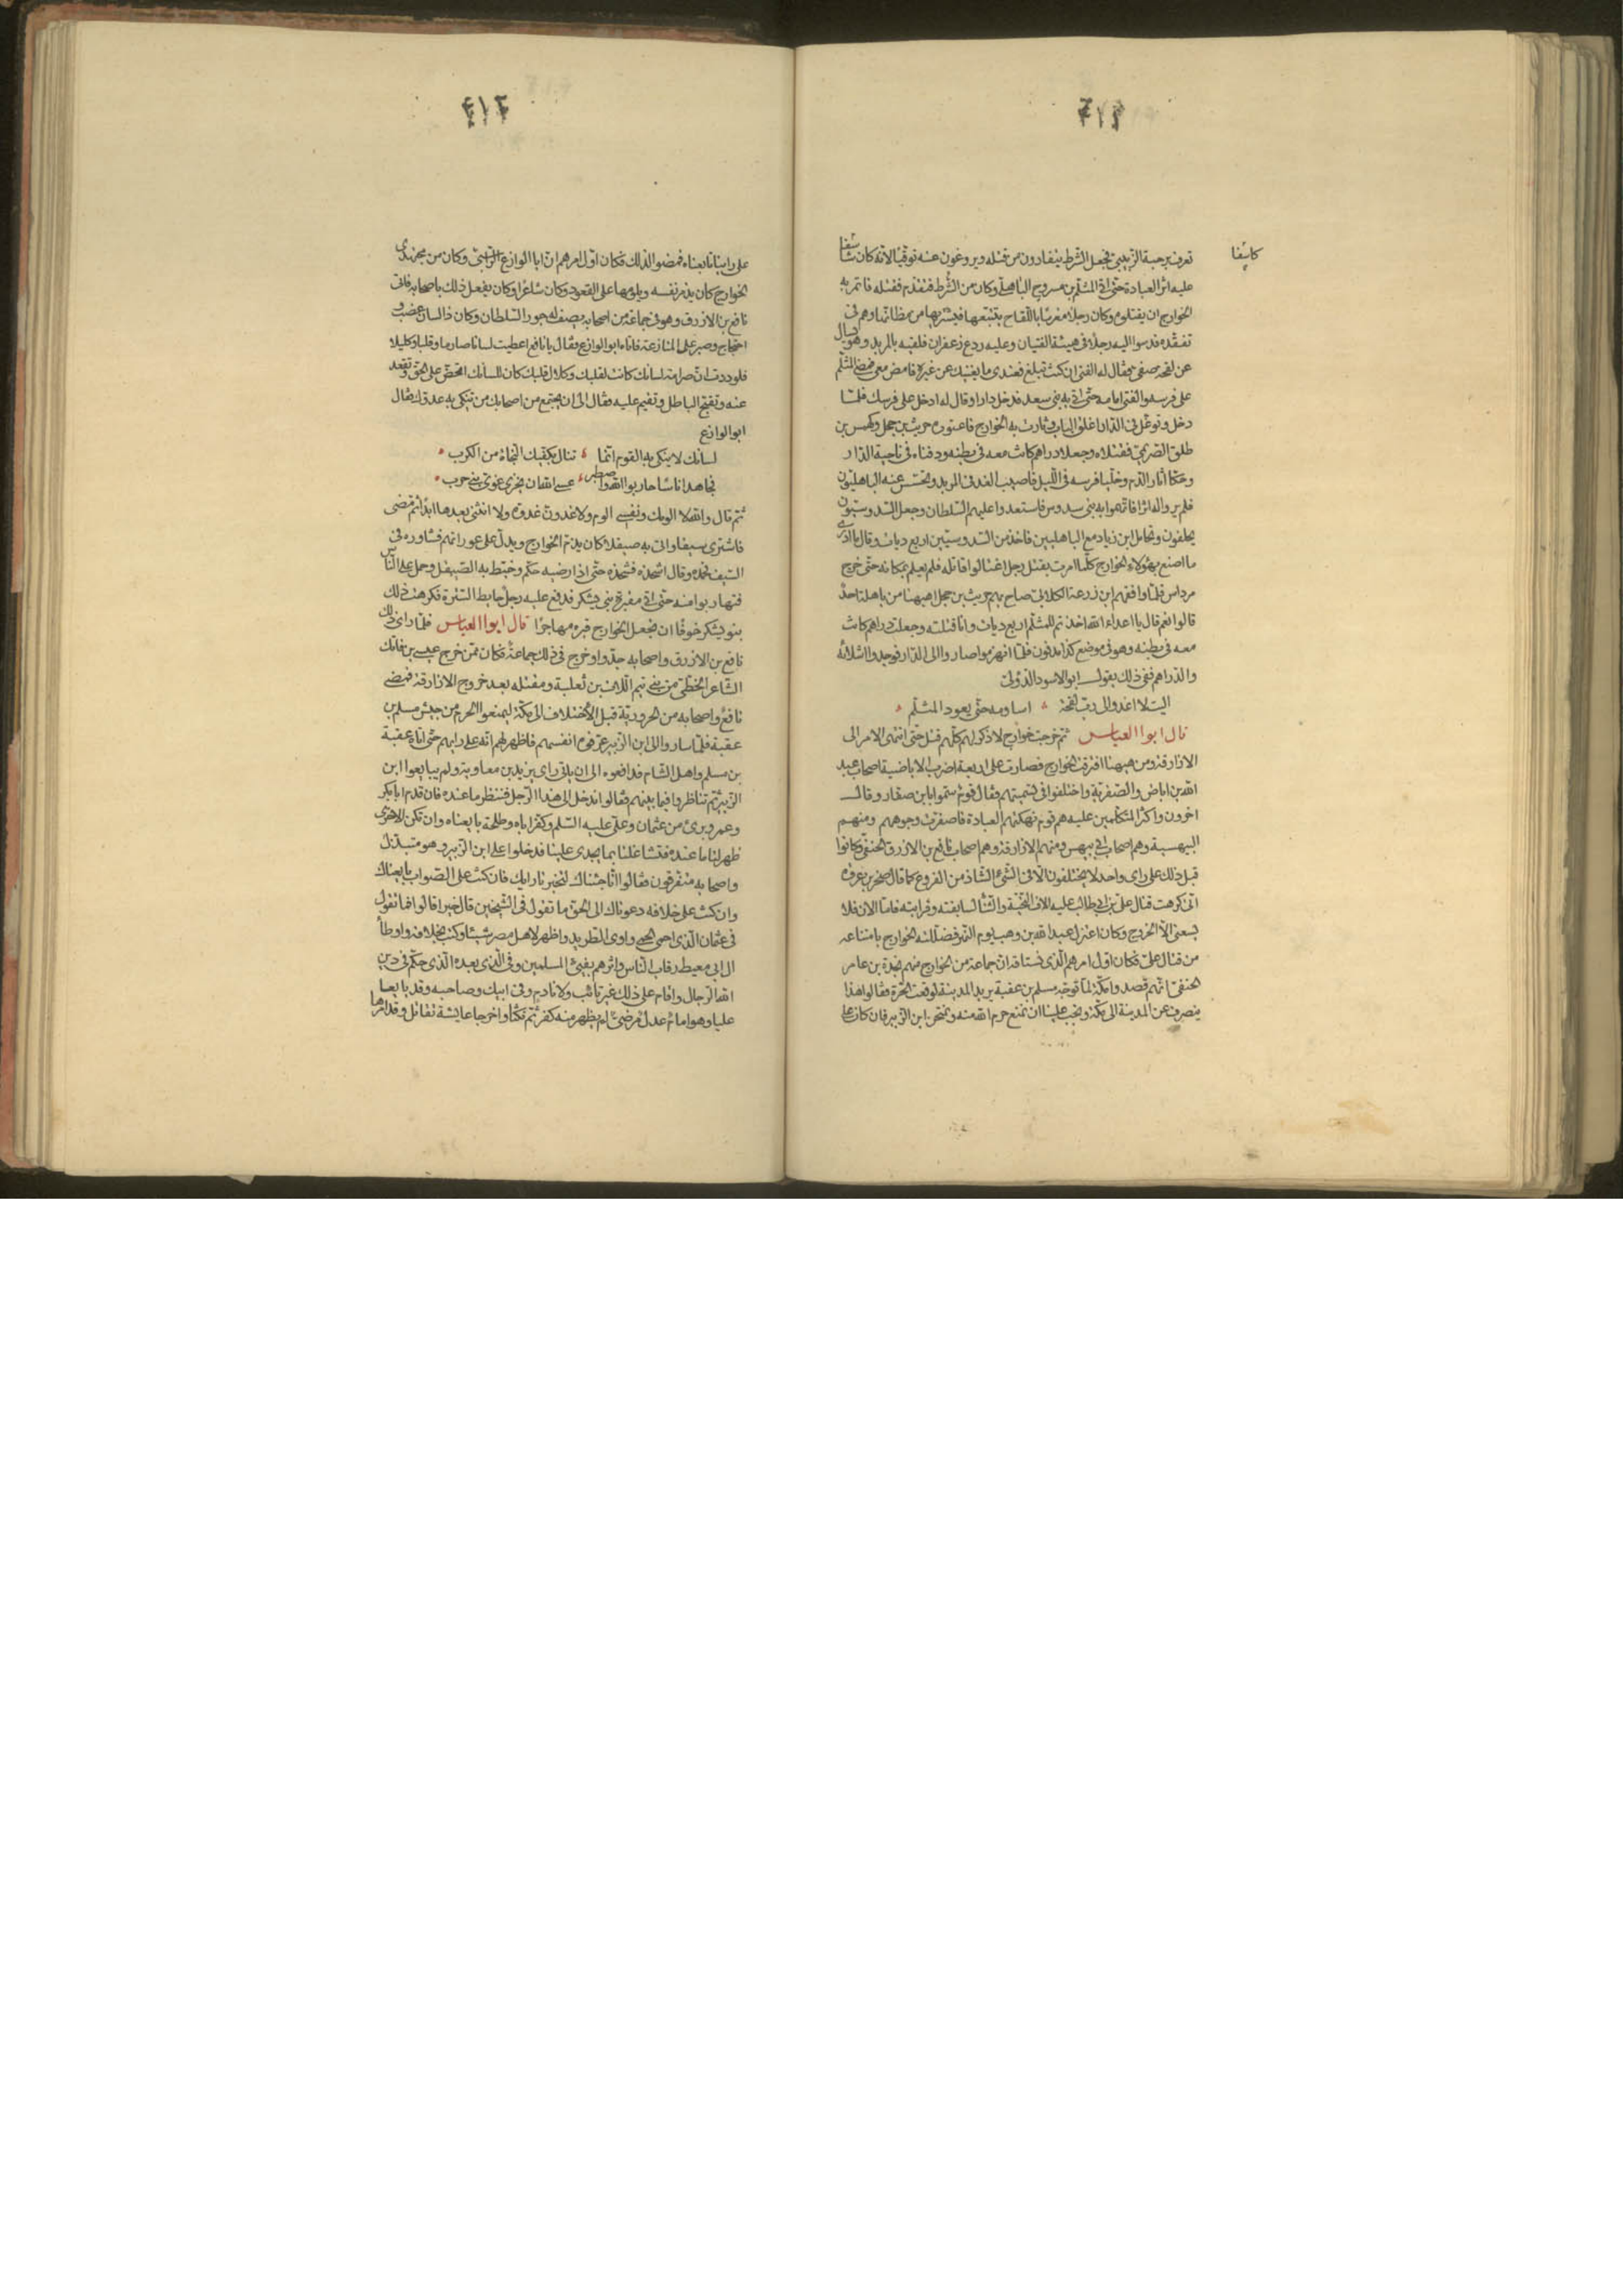 ٤١٣
كاشفا
تعرف برحبة الزينبي فجعل الشرط يتفادون من قتله ويروغون عنه توقيا لانه كان شاسفا
عليه اثر العبادة حتى اتى المثلم بن مسروح الباهلي وكان من الشرط فتقدم فقتله فائتمر به
الخوارج ان يقتلوه وكان رجلا مغرما باللقاح يتتبعها فيشتريها من مظانها وهم في
تفقده فدسوا اليه رجلا في هيئة الفتيان وعليه ردع زعفران فلقيه بالمربد وهو يسال
عن لقحة صفي فقال له الفتى ان كنت تبلغ فعندي ما يغنيك عن غيره فامض معي فمضى المثلم
على فرسه والفتى امامه حتى اتى به بني سعد فدخل دارا وقال له ادخل على فرسك فلما
دخل وتوغل في الدار اغلق الباب وثارت به الخوارج فاعتوره حريث بن حجل وكهمس بن
طلق الصريمي فقتلاه وجعلا دراهم كانت معه في بطنه ودفناه في ناحية الدار
وحكا اثار الدم وخليا فرسه في الليل فاصيب الغد في المربد وتجسس عنه الباهليون
فلم يروا له اثرا فاتهموا به بني سدوس فاستعدوا عليهم السلطان وجعل السدوسيون
يحلفون وتحامل ابن زياد مع الباهليين فاخذ من السدوسيين اربع ديات وقال ما ادري
ما اصنع بهؤلاء الخوارج كلما امرت بقتل رجل اغتالوا قاتله فلم يعلم بمكانه حتى خرج
مرداس فلما وافقهم ابن زرعة الكلابي صاح بهم حريث بن حجل اههنا من باهلة احد
قالوا نعم قال يا اعداء الله اخذتم للمثلم اربع ديات وانا قتلته وجعلت دراهم كانت
معه في بطنه وهو في موضع كذا مدفون فلما انهزموا صاروا الى الدار فوجدوا اشلائه
والدراهم ففي ذلك يقول ابو الاسود الدؤلي
اليت لا اغدو الى رب لقحة اساومه حتى يعود المثلم
قال ابوا العباس ثم خرجت خوارج لا ذكر لهم كلهم قتل حتى انتهى الامر الى
الازارقة ومن ههنا افترقت الخوارج فصارت على اربعة اضرب الاباضية اصحاب عبد
الله بن اباض والصفرية واختلفوا في تسميتهم فقال قوم سموا بابن صفار وقال
اخرون واكثر المتكلمين عليه هم قوم نهكتهم العبادة فاصفرت وجوههم ومنهم
البيهسية وهم اصحاب ابي بيهس ومنهم الازارقة وهم اصحاب نافع بن الازرق الحنفي وكانوا
قبل ذلك على راى واحد لا يختلفون الا في الشئ الشاذ من الفروع كما قال صخر بن عروة
اني كرهت قتال علي بن ابي طالب عليه الاف التحية والثنا لسابقته وقرابته فاما الان فلا
يسعني الا الخروج وكان اعتزل عبد الله بن وهب يوم النهر فضللته الخوارج بامتناعه
من قتال علي فكان اول امرهم الذي نستاقه ان جماعة من الخوارج منهم نجدة بن عامر
الحنفي انهم قصدوا مكة لما توجه مسلم بن عقبة يريد المدينة لوقعة الحرة فقالوا هذا
ينصرف عن المدينة الى مكة ويجب علينا ان نمنع حرم الله منه ونمتحن ابن الزبير فان كان على
٤١٤
على راينا تابعناه فمضوا لذلك فكان اول امرهم ان ابا الوازع الراسبي وكان من مجتهدي
الخوارج كان يذمر نفسه ويلومها على القعود وكان شاعرا وكان يفعل ذلك باصحابه فاتى
نافع بن الازرق وهو في جماعة من اصحابه يصف لهم جور السلطان وكان ذا لسان عضب و
احتجاج وصبر على المنازعة فاتاه ابو الوازع فقال يا نافع اعطيت لسانا صارما وقلبا كليلا
فلوددت ان صرامة لسانك كانت لقلبك وكلال قلبك كان للسانك اتحض على الحق وتقعد
عنه وتقبح الباطل وتقيم عليه فقال الى ان يجتمع من اصحابك من تنكي به عدوك فقال
ابو الوازع
لسانك لا ينكى به القوم انما تنال بكفيك النجاة من الكرب
فجاهد اناسا حاربوا الله واصطبر عسى الله ان يخزي غوي بني حرب
ثم قال والله لا الومك ونفسي الوم ولاغدون غدوة ولا انثني بعدها ابدا ثم مضى
فاشترى سيفا واتى به صيقلا كان يذم الخوارج ويدل على عوراتهم فشاوره في
السيف فحده وقال اشحذه فشحذه حتى اذا رضيه حكم وخبط به الصيقل وحمل على الناس
فتهاربوا منه حتى اتى مقبرة بني يشكر فدفع عليه رجل حايط السترة فكرهت ذلك
بنو يشكر خوفا ان يجعل الخوارج قبره مهاجرا قال ابوا العباس فلما راى ذلك
نافع بن الازرق واصحابه جدوا وخرج في ذلك جماعة فكان ممن خرج عيسى بن فاتك
الشاعر الخطي من بني تيم اللات بن ثعلبة ومقتله بعد خروج الازارقة فمضى
نافع واصحابه من الحرورية قبل الاختلاف الى مكة ليمنعوا الحرم من جيش مسلم بن
عقبة فلما ساروا الى ابن الزبير عرفوه انفسهم فاظهر لهم انه على رايهم حتى اتاه عقبة
بن مسلم واهل الشام فدافعوه الى ان ياتي راى يزيد بن معاوية ولم يبايعوا ابن
الزبير ثم تناظروا فيما بينهم فقالوا ندخل الى هذا الرجل فننظر ما عنده فان قدم ابا بكر
وعمر وبرئ من عثمان وعلي عليه السلم وكفر اباه وطلحة بايعناه وان تكن الاخرى
ظهر لنا ما عنده فتشاغلنا بما يجدي علينا فدخلوا على ابن الزبير وهو متبذل
واصحابه متفرقون فقالوا انا جئناك لتخبرنا رايك فان كنت على الصواب بايعناك
وان كنت على خلافه دعوناك الى الحق ما تقول في الشيخين قال خيرا قالوا فما تقول
في عثمان الذي احمى الحمى واوى الطريد واظهر لاهل مصر شيئا وكتب بخلافه واوطا
ال ابي معيط رقاب الناس واثرهم بفئ المسلمين وفي الذي بعده الذي حكم في دين
الله الرجال واقام على ذلك غير تائب ولا نادم وفي ابيك وصاحبه وقد بايعا
عليا وهو امام عدل مرضي لم يظهر منه كفر ثم نكثا واخرجا عايشة تقاتل وقد امرها